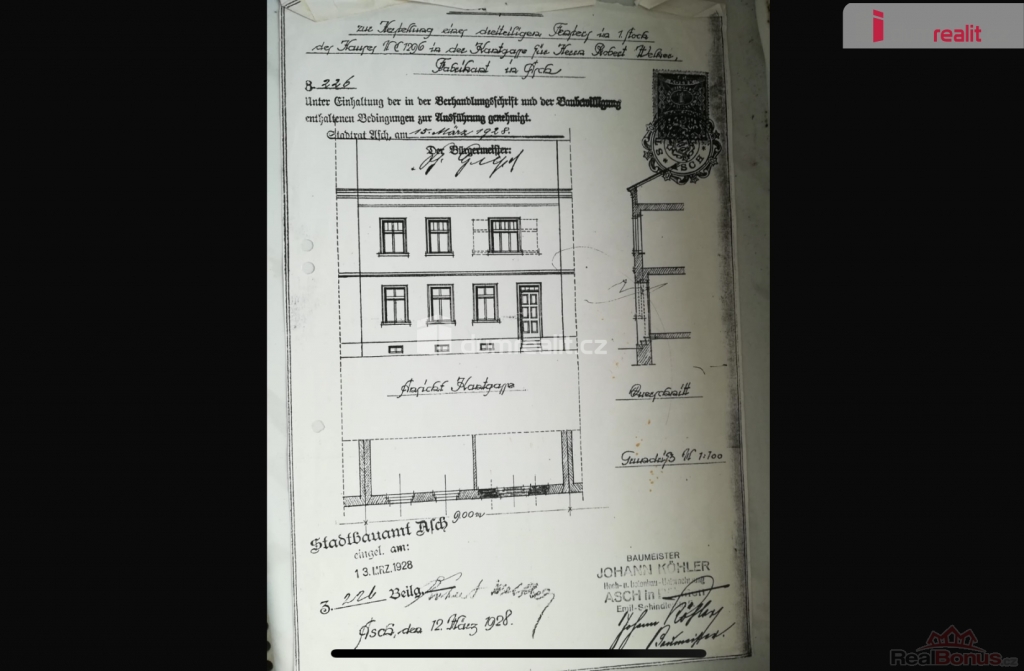 i realit
zur Herstellung eines dreiteiligen Fensters im 1. Stock
des Hauses N.C. 1206 in der Hantgasse für Herrn Robert
Fabrikant in Asch
Z. 226
Unter Einhaltung der in der Verhandlungsschrift und der Baubewilligung
enthaltenen Bedingungen zur Ausführung genehmigt.
Stadtrat Asch, am 15. März 1928.
Der Bürgermeister:
domrealit.cz
Ansicht Hantgasse
Querschnitt
Grundriß M 1:100
9.00 m
Stadtbauamt Asch
eingel. am:
13. MRZ. 1928
Z. 226 Beilg.
Asch, den 12. März 1928.
BAUMEISTER
JOHANN KÖHLER
ASCH in
Johann Köhler
Baumeister.
RealBonus